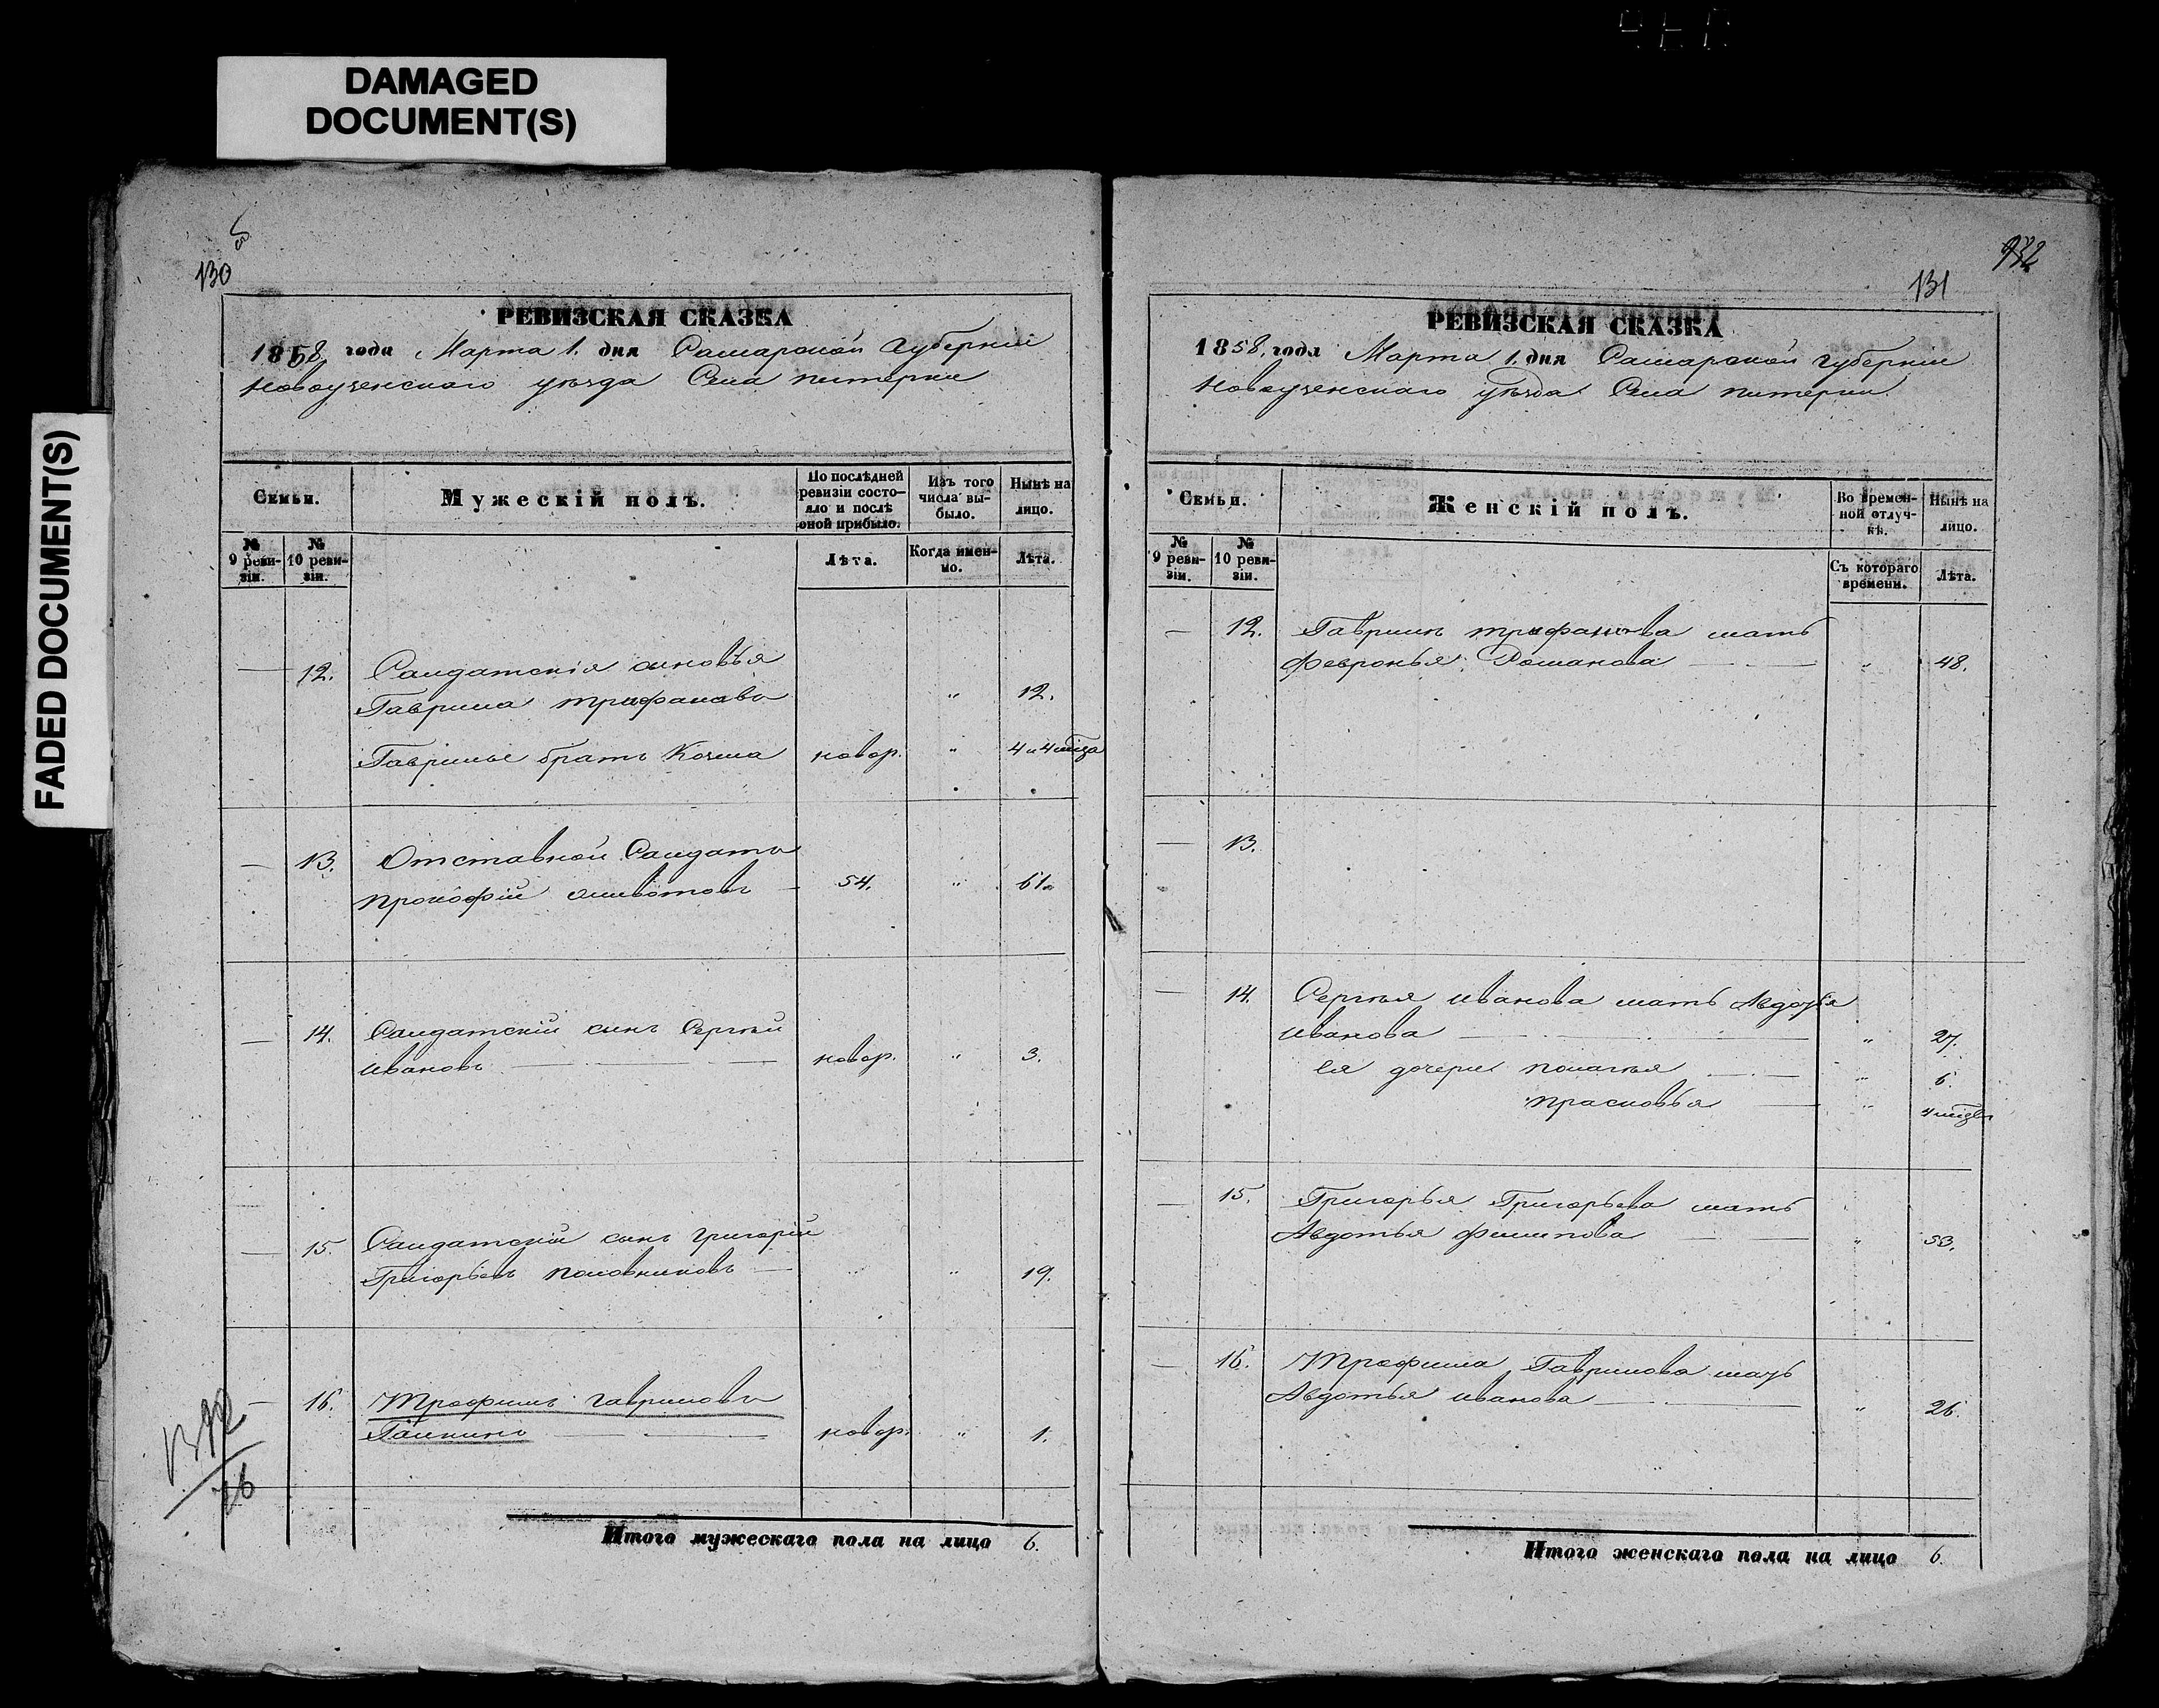 DAMAGED
DOCUMENT(S)
FADED DOCUMENT(S)
130
РЕВИЗСКАЯ СКАЗКА
1858 года Марта 1. дня Самарской Губернiи
Новоузенскаго уѣзда Села Питерки
Семьи.
Мужескiй полъ.
По послѣдней ревизiи состояло и послѣ оной прибыло.
Изъ того числа выбыло.
Нынѣ на лицо.
№ 9 ревизiи.
№ 10 ревизiи.
Лѣта.
Когда именно.
Лѣта.
— 12. Салдатскiя сыновья
Гаврила Трифановъ " 12.
Гаврилы братъ Козма новор. " 4 и 4 мѣца
— 13. Отставной Салдатъ
Прокофiй 54. " 61.
— 14. Салдатскiй сынъ Сергѣй
Ивановъ — новор. " 3.
— 15. Салдатскiй сынъ Григорiй
Григорьевъ Половниковъ — " " 19.
— 16. Трофимъ Гавриловъ
Галкинъ — новор. " 1.
Итого мужескаго пола на лицо 6.
131
РЕВИЗСКАЯ СКАЗКА
1858, года Марта 1. дня Самарской Губернiи
Новоузенскаго уѣзда Села Питерки
Семьи.
Женскiй полъ.
Во временной отлучкѣ.
Нынѣ на лицо.
№ 9 ревизiи.
№ 10 ревизiи.
Съ котораго времени.
Лѣта.
— 12. Гаврилы Трифанова мать
Февронья Романова — " 48.
— 13.
— 14. Сергѣя Иванова мать Авдотья
Иванова — " 27.
Ея дочери Пелагѣя — " 6.
Прасковья — " 4 мѣцъ
— 15. Григорья Григорьева мать
Авдотья Филипова — " 53.
— 16. Трофима Гаврилова мать
Авдотья Иванова — " 26.
Итого женскаго пола на лицо 6.